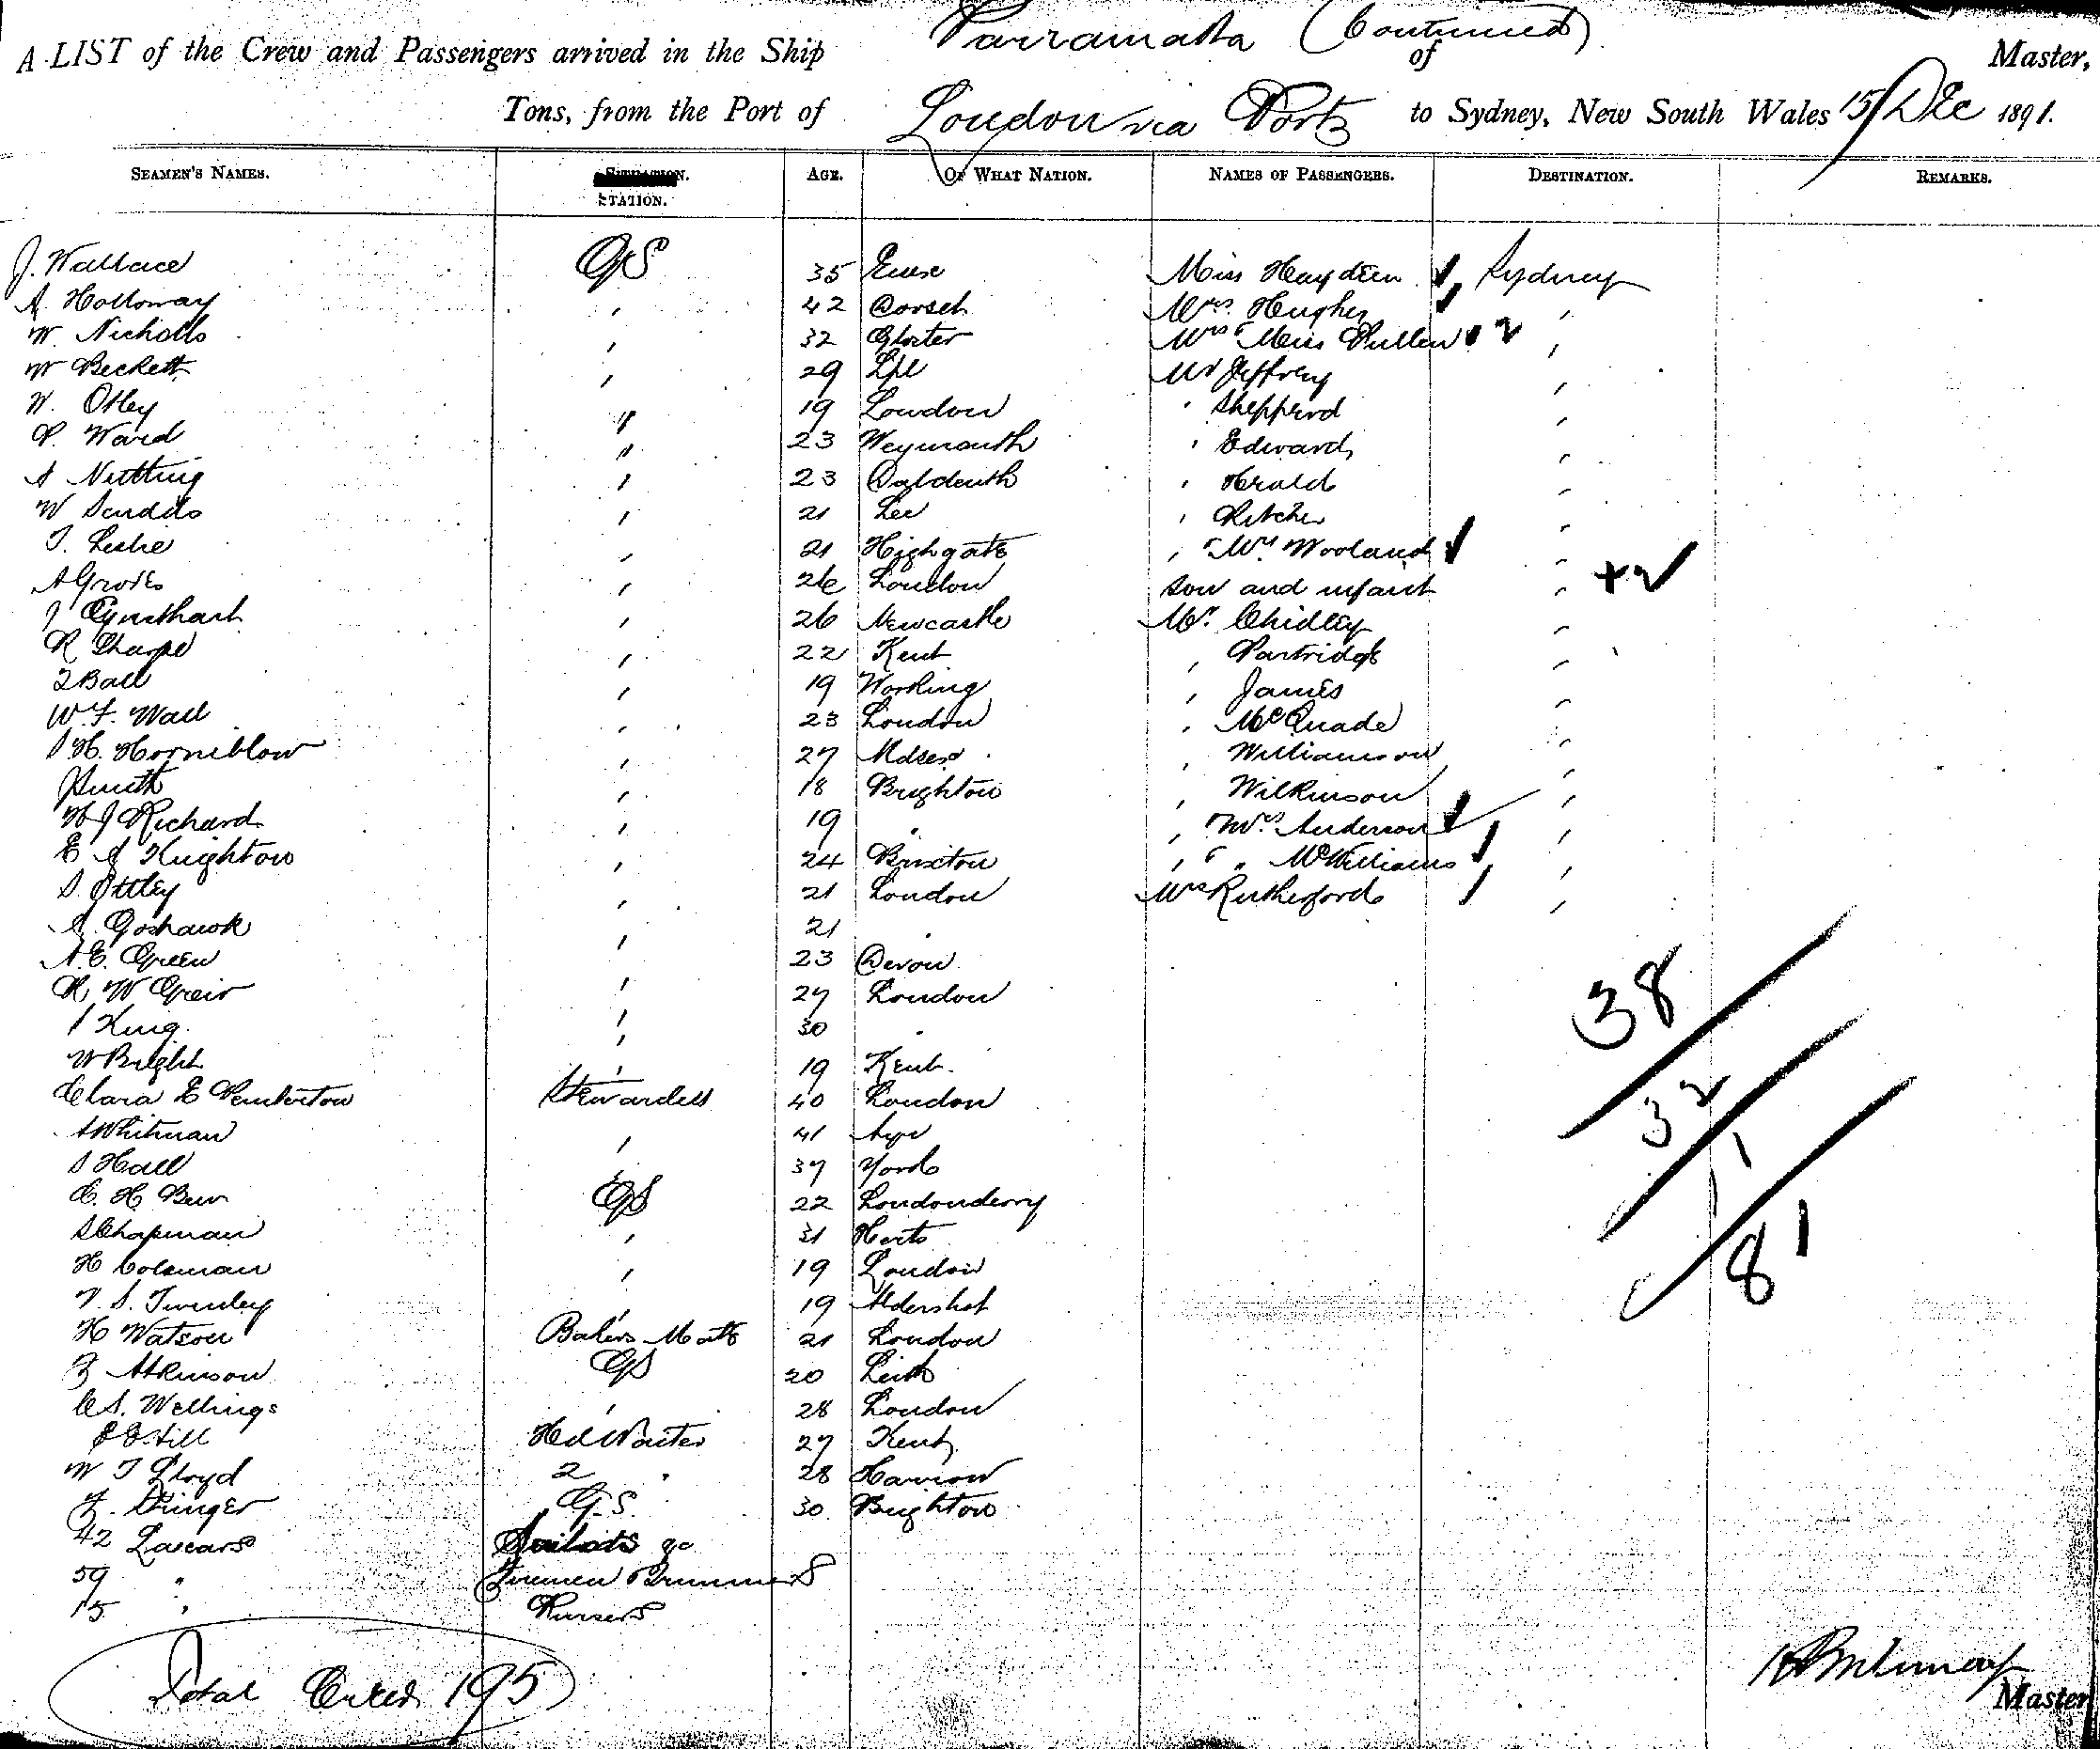 Parramatta (Continued)
A LIST of the Crew and Passengers arrived in the Ship of Master,
Tons, from the Port of London via Ports to Sydney, New South Wales 15/Dec 1891.
SEAMEN'S NAMES. STATION. AGE. OF WHAT NATION. NAMES OF PASSENGERS. DESTINATION. REMARKS.
J. Wallace GS 35 Miss Haydeen Sydney
A. Holloway " 42 Dorset Mrs. Hughes "
W. Nicholls " 32 Gloster Mrs & Miss Pullen 2 "
W Beckett " 29 Lpl Mr Jeffrey "
W. Otley " 19 London " Shepperd "
P. Ward " 23 Weymouth " Edwards "
A Netting " 23 " Herald "
W " 21 Lee " Ritchie "
T. Leslie " 21 Highgate " & Mrs Wooland "
A Groves " 26 London son and infant " + 2
J " 26 Newcastle Mr. Chidley "
R Sharpe " 22 Kent " Partridge "
Ball " 19 Working " James "
W. F. Wall " 23 London " McQuade "
H. Horniblow " 27 Mdsex " Williamson "
J Smith " 18 Brighton " Wilkinson "
W J Richard " 19 " " & Mrs. Anderson "
E A Knighton " 24 Brixton " & " McWilliams "
S. Ottley " 21 London Mrs Rutherford "
A. Goshawk " 21 "
A. E. Green " 23 Devon
R W Greir " 27 London
King " 30 "
W Bright " 19 Kent
Clara E Pemberton Stewardess 40 London
A Whitman " 41 Ayr
S Hall 37 Yorks
C. H. GS 22 Londonderry
S Chapman " 31 Herts
H Coleman " 19 London
V. S. Twinley " 19 Aldershot
H Watson Bakers Mate 21 London
Atkinson GS 20 Leith
C S. Wellings " 28 London
Hill Hd Waiter 27 Kent
W T Lloyd 2 " 28 Harrow
F. Stringer G.S. 30 Brighton
42 Lascars
59 " Firemen Trimmers
15 " Pursers
38
32
1
81
Total Crew 195
Master